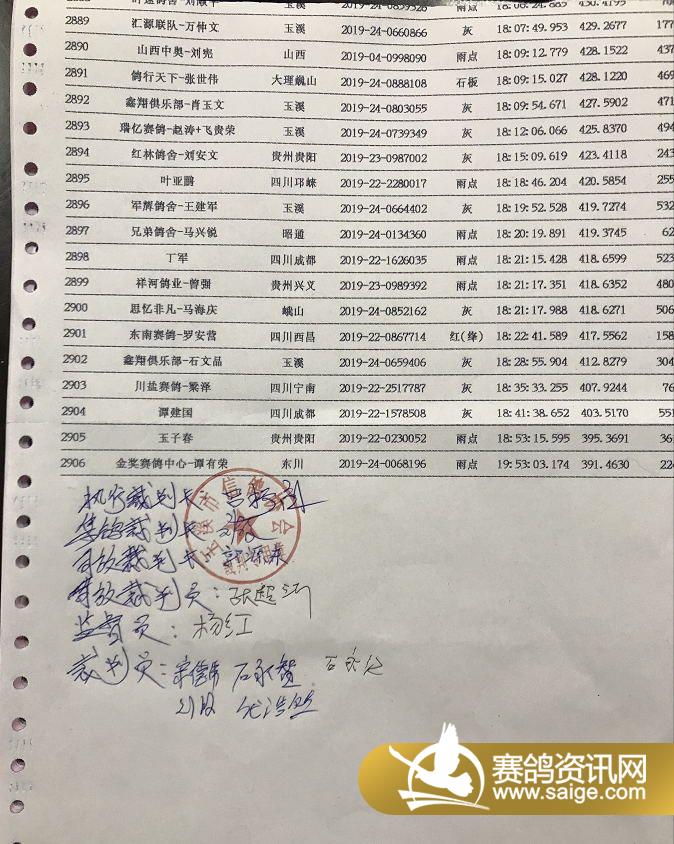 2889 汇源联队-万仲文 玉溪 2019-24-0660866 灰 18:07:49.953 429.2677 177
2890 山西中奥-刘宪 山西 2019-04-0998090 雨点 18:09:12.779 428.1522 437
2891 鸽行天下-张世伟 大理巍山 2019-24-0888108 石板 18:09:15.027 428.1220 469
2892 鑫翔俱乐部-肖玉文 玉溪 2019-24-0803055 灰 18:09:54.671 427.5902 471
2893 瑞亿赛鸽-赵涛+飞贵荣 玉溪 2019-24-0739349 灰 18:12:06.066 425.8370 494
2894 红林鸽舍-刘安文 贵州贵阳 2019-23-0987002 灰 18:15:09.619 423.4118 243
2895 叶亚鹏 四川邛崃 2019-22-2280017 雨点 18:18:46.204 420.5854 255
2896 军辉鸽舍-王建军 玉溪 2019-24-0664402 灰 18:19:52.528 419.7274 532
2897 兄弟鸽舍-马兴锐 昭通 2019-24-0134360 雨点 18:20:19.891 419.3745 62
2898 丁军 四川成都 2019-22-1626035 雨点 18:21:15.428 418.6599 523
2899 祥河鸽业-曾强 贵州兴义 2019-23-0989392 雨点 18:21:17.351 418.6352 480
2900 思忆非凡-马海庆 峨山 2019-24-0852162 灰 18:21:17.988 418.6271 506
2901 东南赛鸽-罗安营 四川西昌 2019-22-0867714 红(绛) 18:22:41.589 417.5562 158
2902 鑫翔俱乐部-石文品 玉溪 2019-24-0659406 灰 18:28:55.904 412.8279 304
2903 川盐赛鸽-梁泽 四川宁南 2019-22-2517787 灰 18:35:33.255 407.9244 76
2904 谭建国 四川成都 2019-22-1578508 灰 18:41:38.652 403.5170 551
2905 玉子春 贵州贵阳 2019-22-0230052 雨点 18:53:15.595 395.3691 361
2906 金奖赛鸽中心-谭有荣 东川 2019-24-0068196 雨点 19:53:03.174 391.4630 224
执行裁判长:
集鸽裁判长:
司放裁判长:
裁判员:
监督员: 杨红
裁判员: 石永贺
赛鸽资讯网
www.saige.com